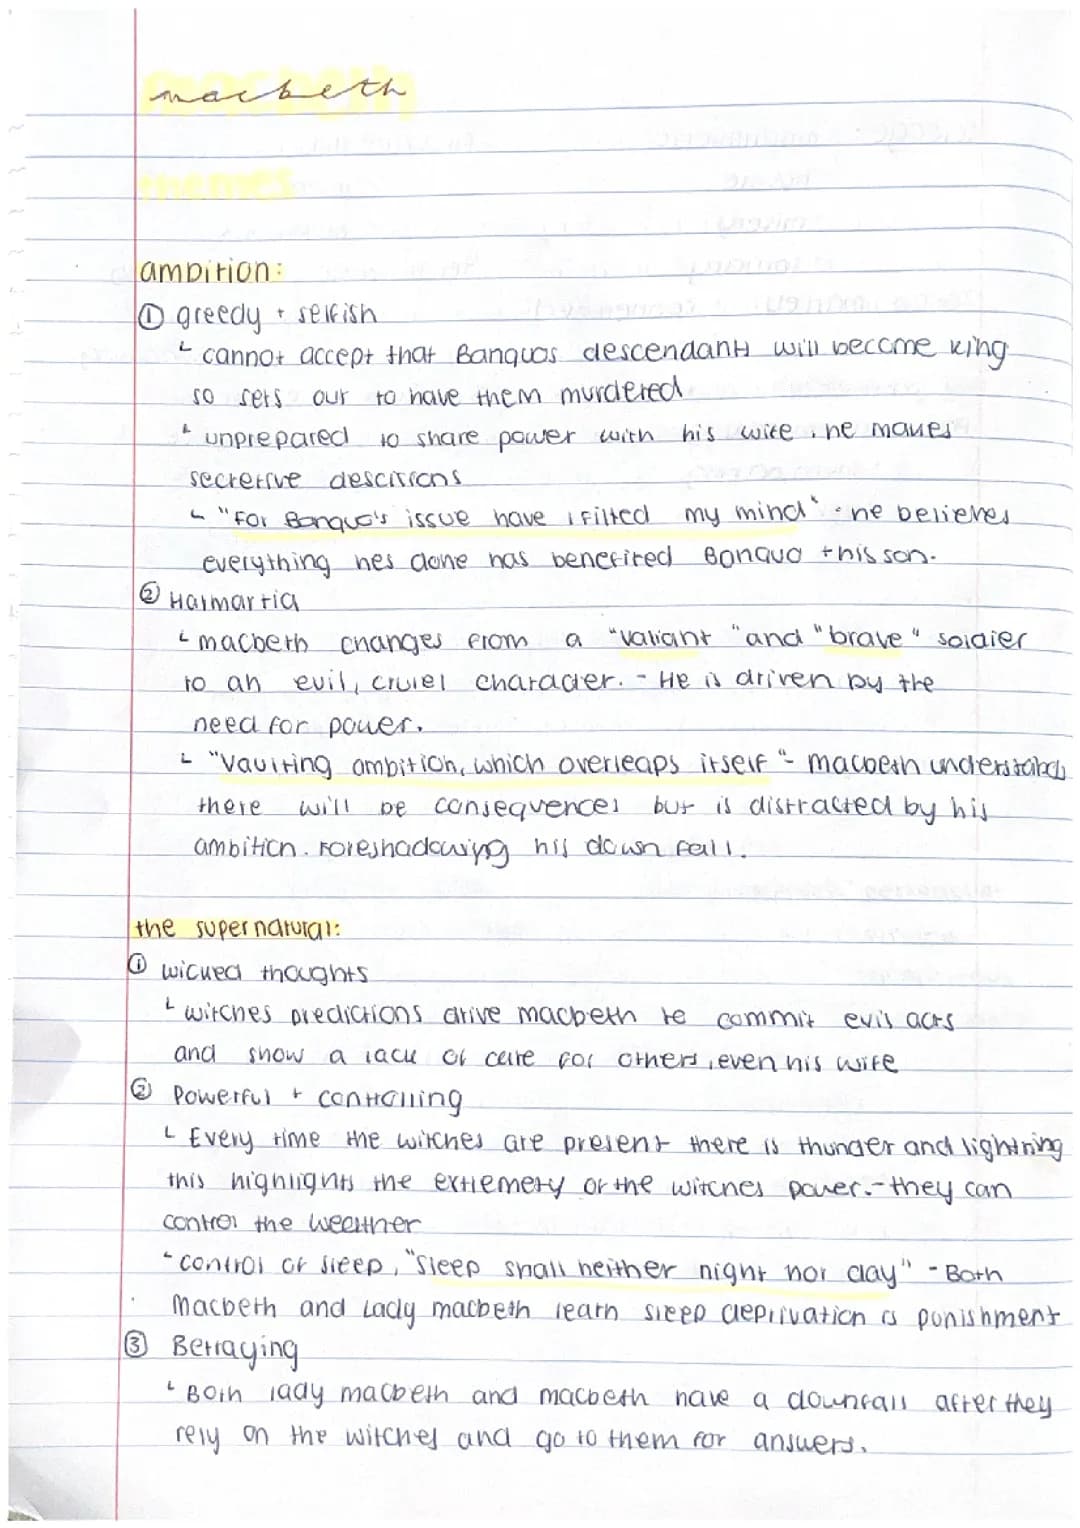 macbeth
themes
ambition:
① greedy + selfish
↳ cannot accept that Banquos descendants will become king
so sets out to have them murdered
↳ unprepared to share power with his wife, he makes
secretive descitions
↳ "For Banquo's issue have i filted my mind" - he believes
everything hes done has benefited Banquo + his son.
② Harmartia
↳ macbeth changes from a "valiant" and "brave" soldier
to an evil, cruel character. - He is driven by the
need for power.
↳ "Vaulting ambition, which overleaps itself" - macbeth understands
there will be consequences but is distracted by his
ambition. Foreshadowing his down fall.
the supernatural:
① wicked thoughts
↳ witches predictions drive macbeth to commit evil acts
and show a lack of care for others, even his wife
② Powerful + controlling
↳ Every time the witches are present there is thunder and lightning
this highlights the extremety of the witches power. - they can
control the weather
↳ control of sleep, "Sleep shall neither night nor day" - Both
Macbeth and Lady macbeth learn sleep deprivation is punishment
③ Betraying
↳ Both lady macbeth and macbeth have a downfall after they
rely on the witches and go to them for answers.